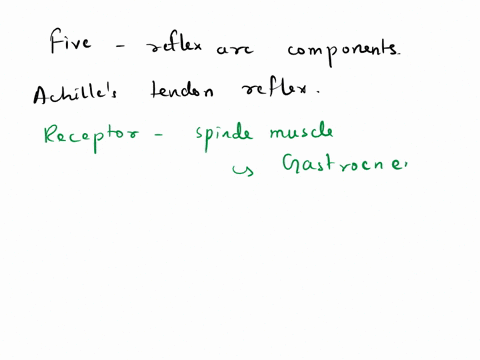 Five - reflex arc components.
Achille's tendon reflex.
Receptor - spinde muscle
↳ Gastrocne